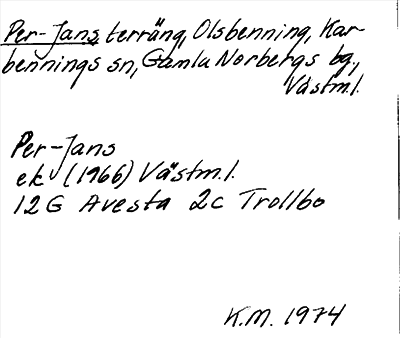 Per-Jans terräng, Olsbenning, Kar-
bennings sn, Gamla Norbergs bg.,
Västm.l.
Per-Jans
ek (1966) Västm.l.
12G Avesta 2c Trollbo
K.M. 1974